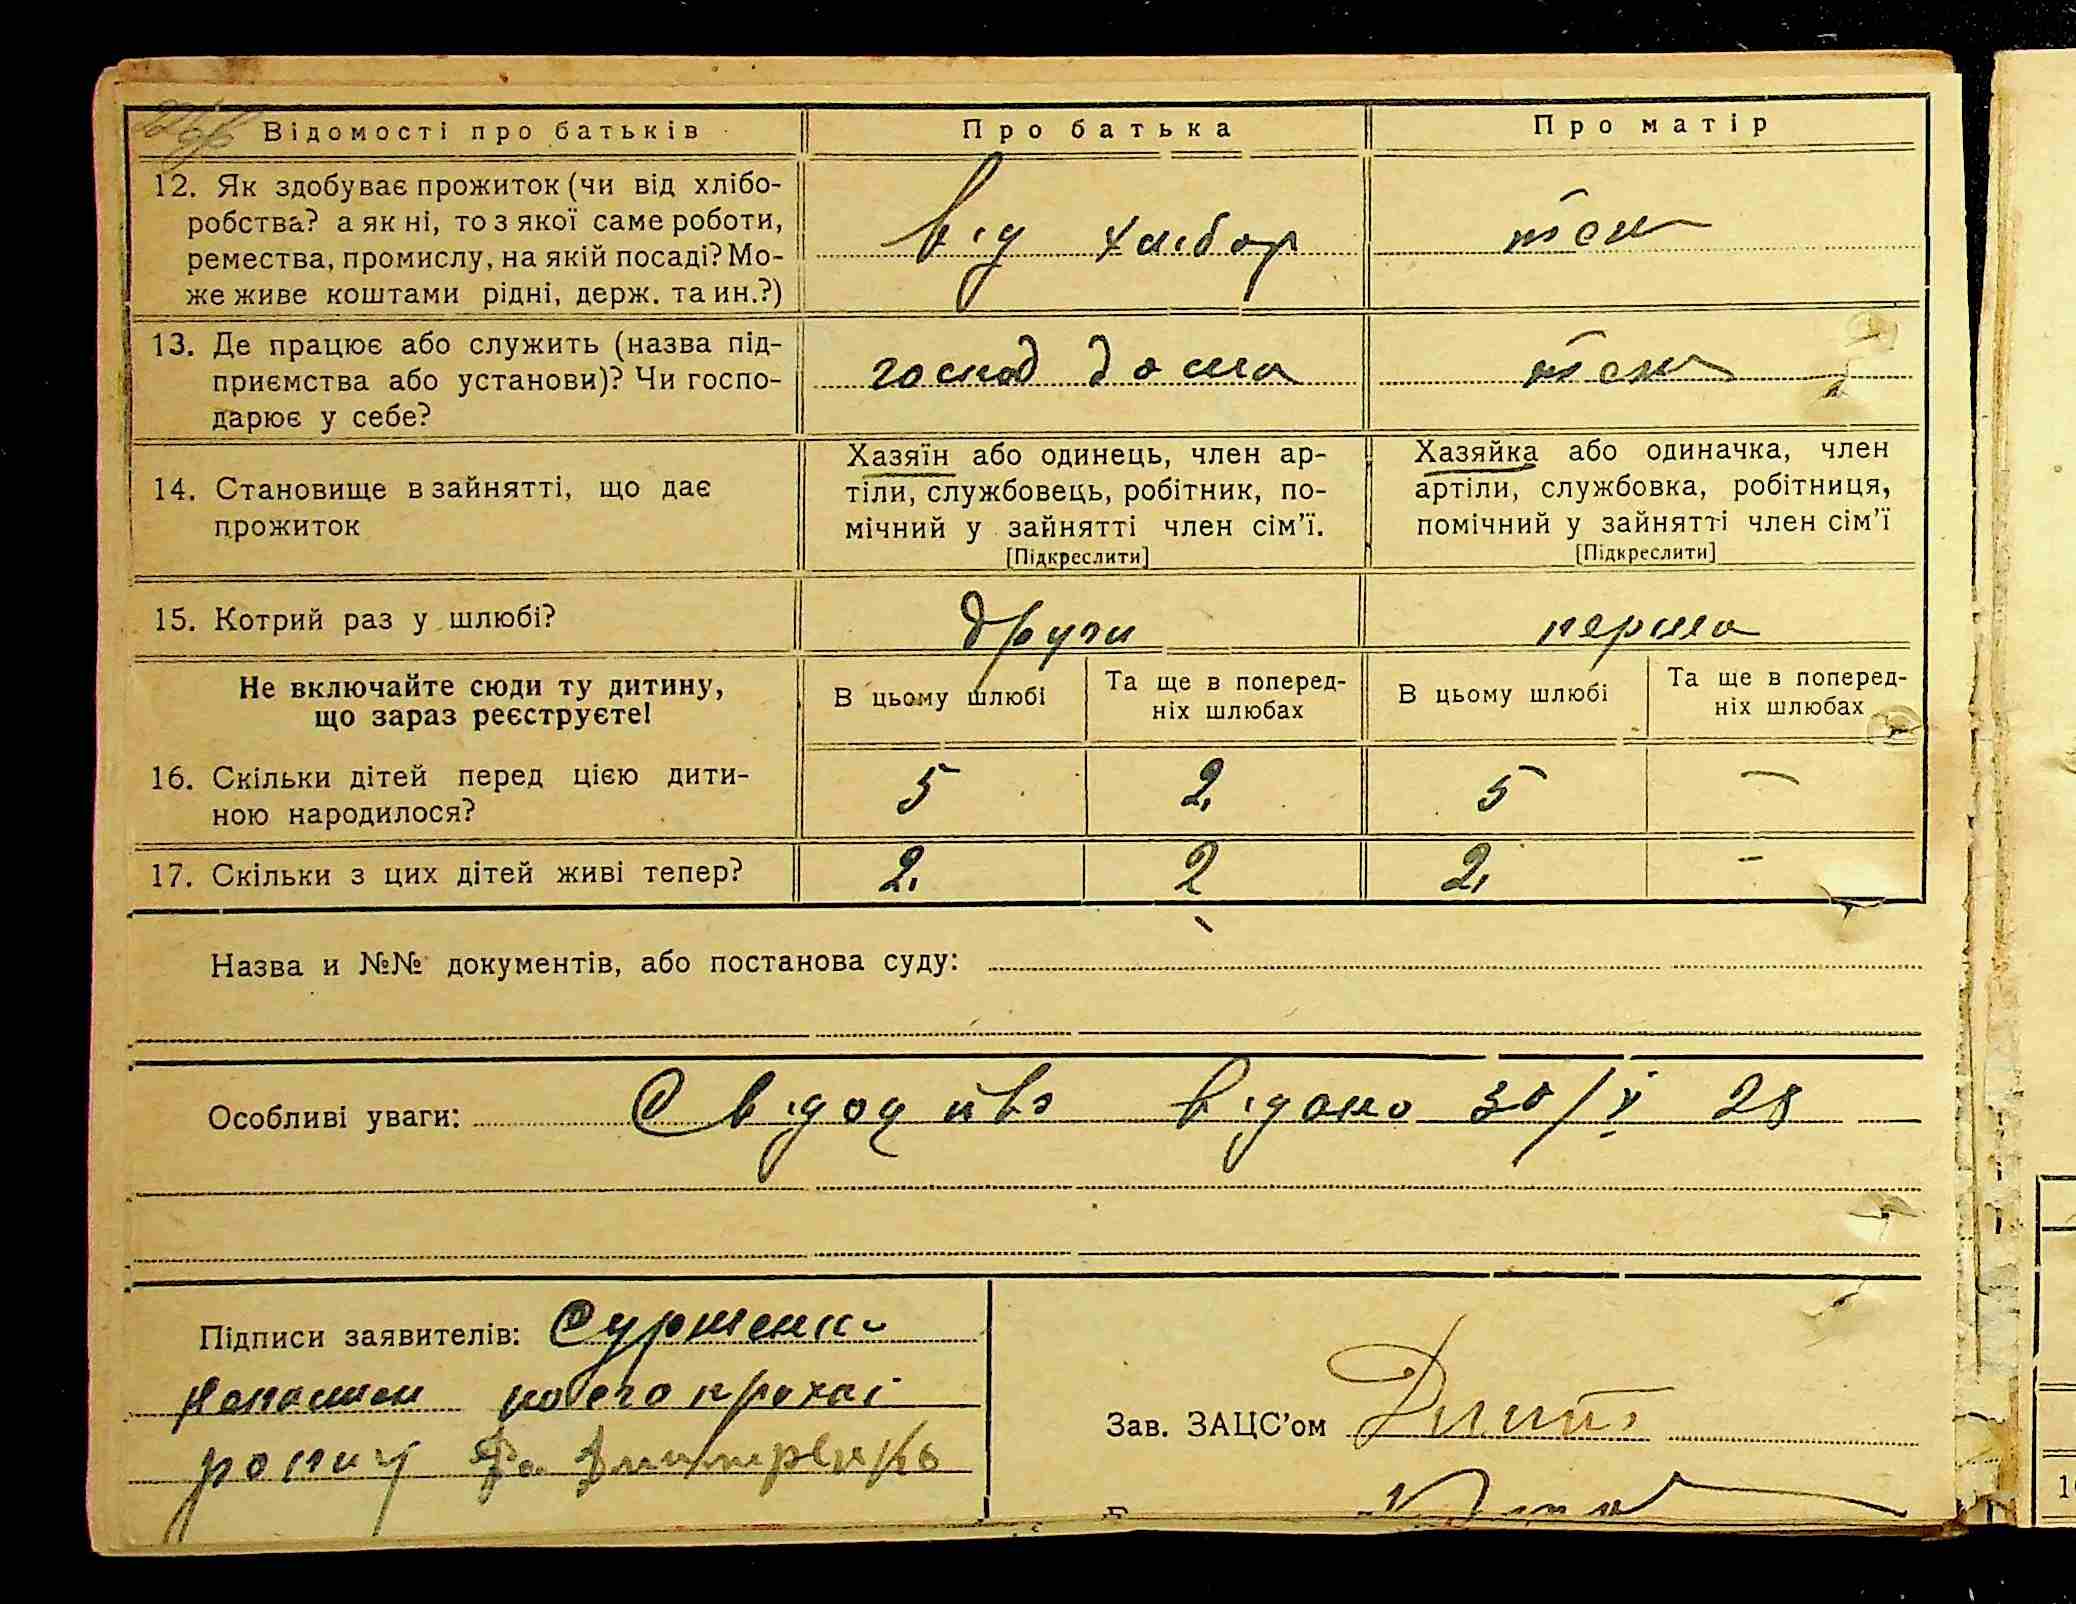 Відомості про батьків
Про батька
Про матір
12. Як здобуває прожиток (чи від хлібо-
робства? а як ні, то з якої саме роботи,
ремества, промислу, на якій посаді? Мо-
же живе коштами рідні, держ. та ин.?)
від хлібор
теж
13. Де працює або служить (назва під-
приємства або установи)? Чи госпо-
дарює у себе?
господ дома
теж
14. Становище в зайнятті, що дає
прожиток
Хазяїн або одинець, член ар-
тіли, службовець, робітник, по-
мічний у зайнятті член сім’ї.
[Підкреслити]
Хазяйка або одиначка, член
артіли, службовка, робітниця,
помічний у зайнятті член сім’ї
[Підкреслити]
15. Котрий раз у шлюбі?
други
перша
Не включайте сюди ту дитину,
що зараз реєструєте!
В цьому шлюбі
Та ще в поперед-
ніх шлюбах
В цьому шлюбі
Та ще в поперед-
ніх шлюбах
16. Скільки дітей перед цією дити-
ною народилося?
5
2.
5
—
17. Скільки з цих дітей живі тепер?
2.
2
2.
-
Назва и №№ документів, або постанова суду:
Особливі уваги:
відано 30/V 28
Підписи заявителів:
Зав. ЗАЦС’ом